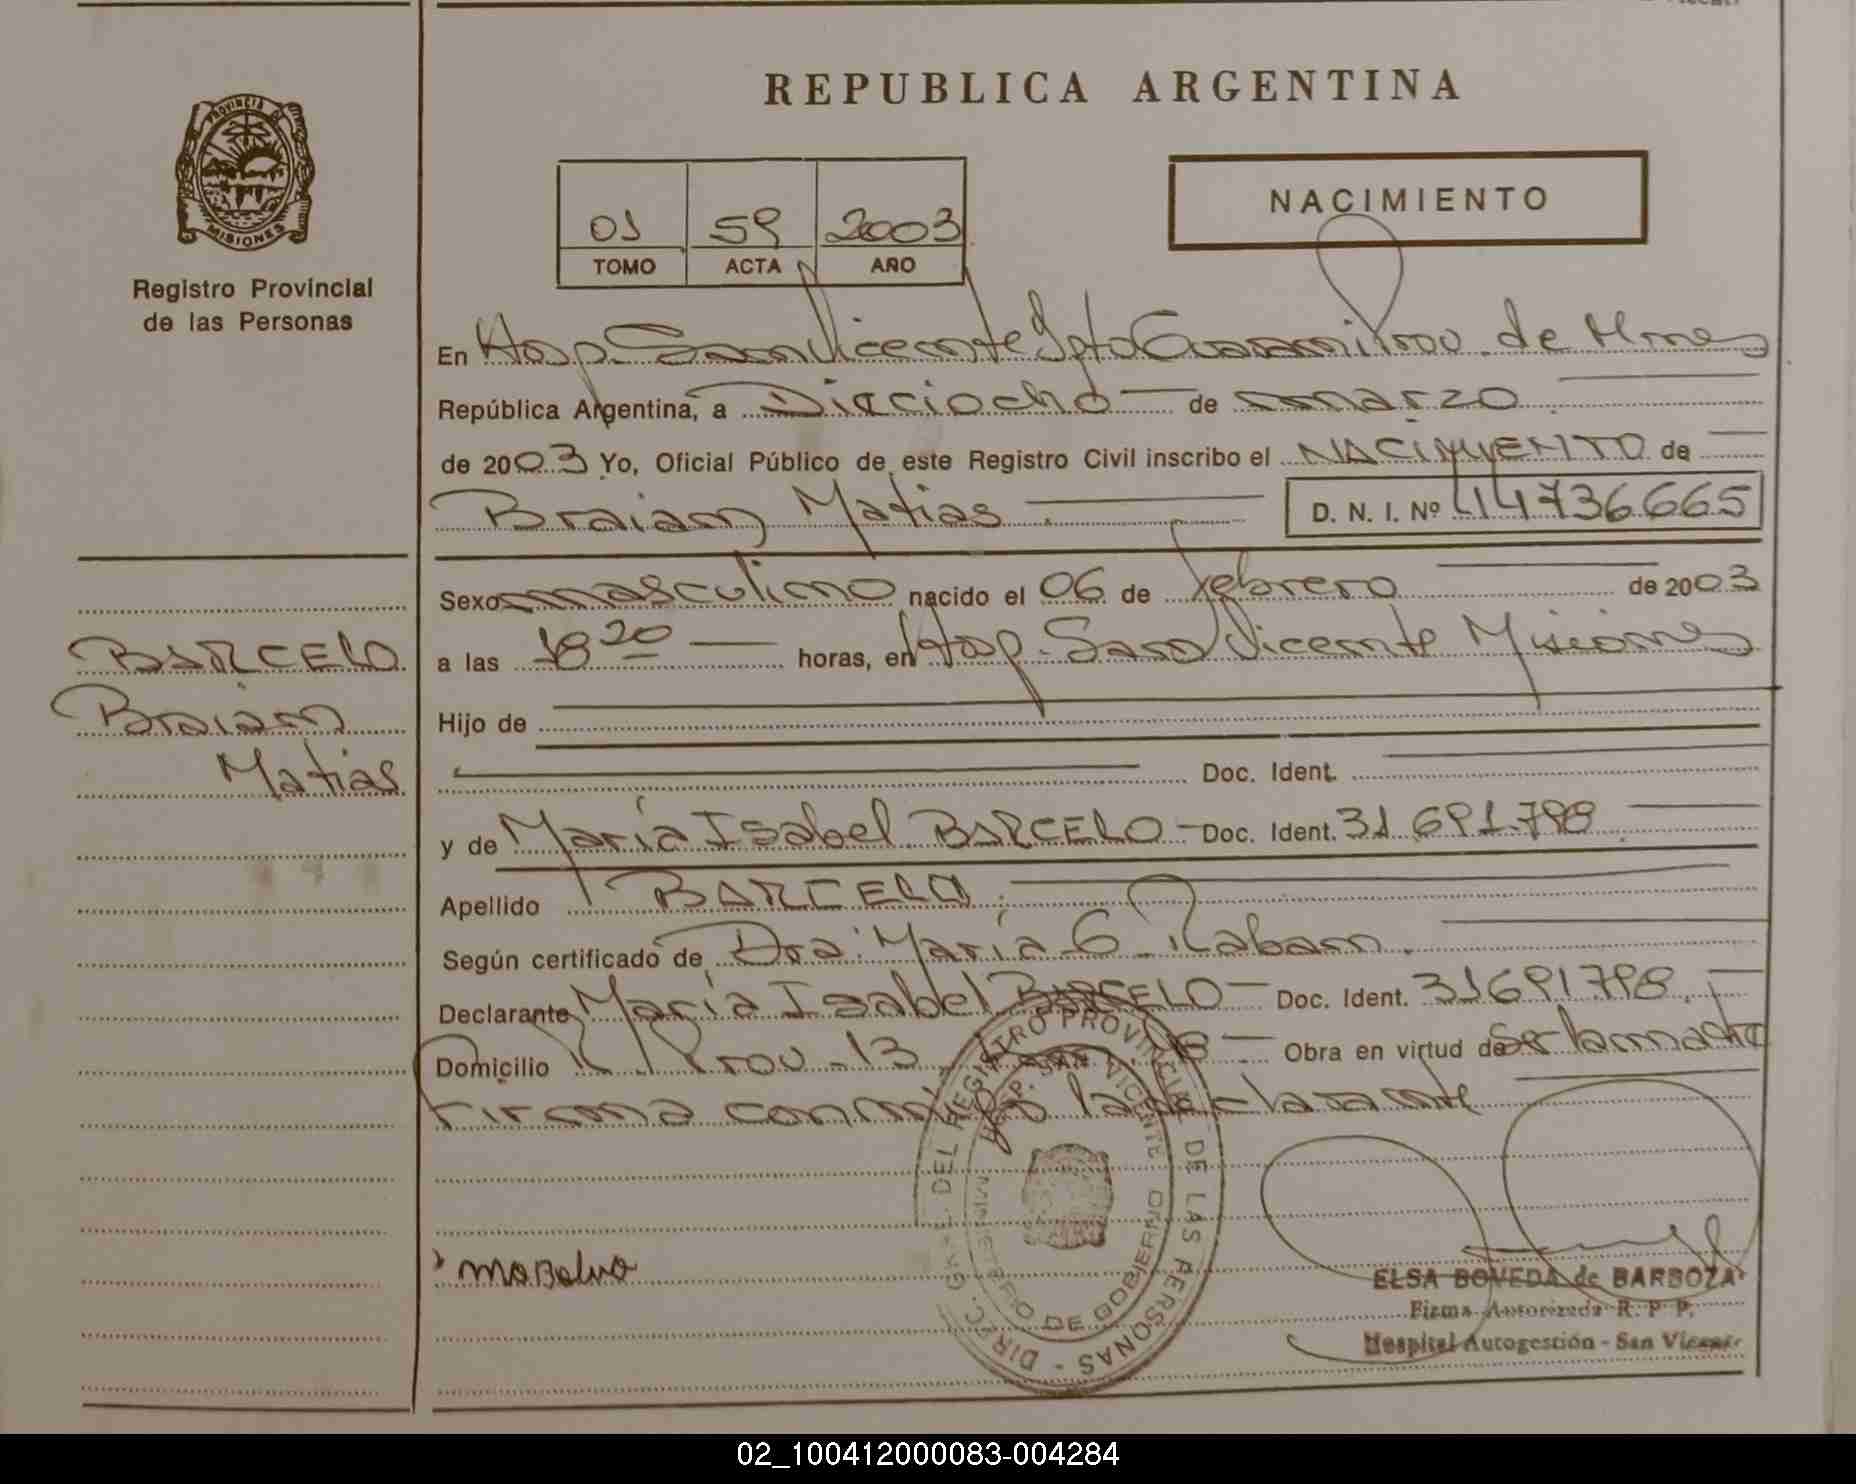 REPUBLICA ARGENTINA
PROVINCIA DE
MISIONES
Registro Provincial
de las Personas
01 59 2003
TOMO ACTA AÑO
NACIMIENTO
En Hosp. San Vicente Dpto Guarani Prov. de Mnes
República Argentina, a Dieciocho de marzo
de 2003 Yo, Oficial Público de este Registro Civil inscribo el NACIMIENTO de
Braian Matias D. N. I. Nº 44736665
Sexo masculino nacido el 06 de febrero de 2003
a las 18 20 horas, en Hosp. San Vicente Misiones
BARCELO
Braian
Matias
Hijo de
Doc. Ident.
y de María Isabel BARCELO - Doc. Ident. 31.691.798
Apellido BARCELO
Según certificado de Dra. María G.
Declarante María Isabel BARCELO - Doc. Ident. 31691798
Domicilio R. Prov. 13 Obra en virtud de ser la madre
Firma conmigo la declarante
DIREC. GRAL. DEL REGISTRO PROVINCIAL DE LAS PERSONAS
HOSP. SAN VICENTE
MINISTERIO DE GOBIERNO
ELSA BOVEDA de BARBOZA
Firma Autorizada R. P. P.
Hospital Autogestión - San Vicente
02_100412000083-004284